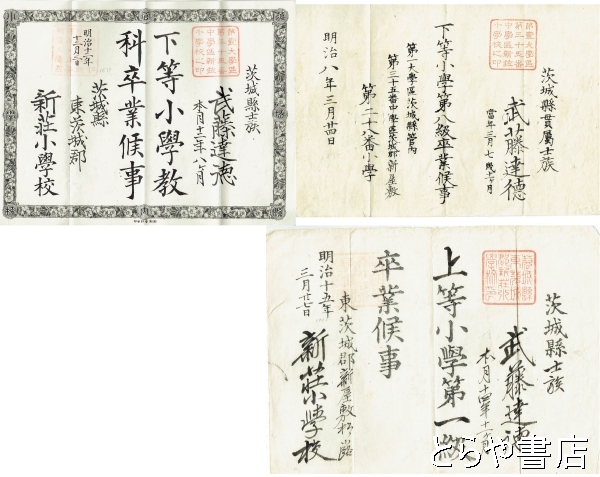 茨城縣士族
武藤達徳
本月十二年八ケ月
下等小學教
科卒業候事
茨城縣
東茨城郡
新莊小學校
明治十一年
茨城縣貫屬士族
武藤達德
當年三月七歳
下等小學第八級卒業候事
第一大學區茨城縣管内
第三十五番中學區茨城郡新屋敷
第二十八番小學
明治八年三月廿四日
茨城縣士族
武藤達德
本月十四年十
上等小學第一級
卒業候事
東茨城郡新屋敷
新莊小學校
明治十五年
三月廿七日
とらや書店